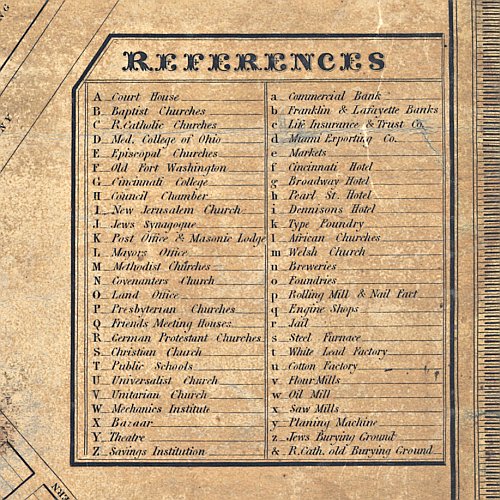 REFERENCES
A Court House
B Baptist Churches
C R.Catholic Churches
D Med. College of Ohio
E Episcopal Churches
F Old Fort Washington
G Cincinnati College
H Council Chamber
I New Jerusalem Church
J Jews Synagogue
K Post Office & Masonic Lodge
L Mayors Office
M Methodist Churches
N Covenanters Church
O Land Office
P Presbyterian Churches
Q Friends Meeting Houses
R German Protestant Churches
S Christian Church
T Public Schools
U Universalist Church
V Unitarian Church
W Mechanics Institute
X Bazaar
Y Theatre
Z Savings Institution
a Commercial Bank
b Franklin & Lafayette Banks
c Life Insurance & Trust Co.
d Miami Exporting Co.
e Markets
f Cincinnati Hotel
g Broadway Hotel
h Pearl St. Hotel
i Dennisons Hotel
k Type Foundry
l African Churches
m Welsh Church
n Breweries
o Foundries
p Rolling Mill & Nail Fact
q Engine Shops
r Jail
s Steel Furnace
t White Lead Factory
u Cotton Factory
v Flour Mills
w Oil Mill
x Saw Mills
y Planing Machine
z Jews Burying Ground
& R.Cath. old Burying Ground
NY
ERN